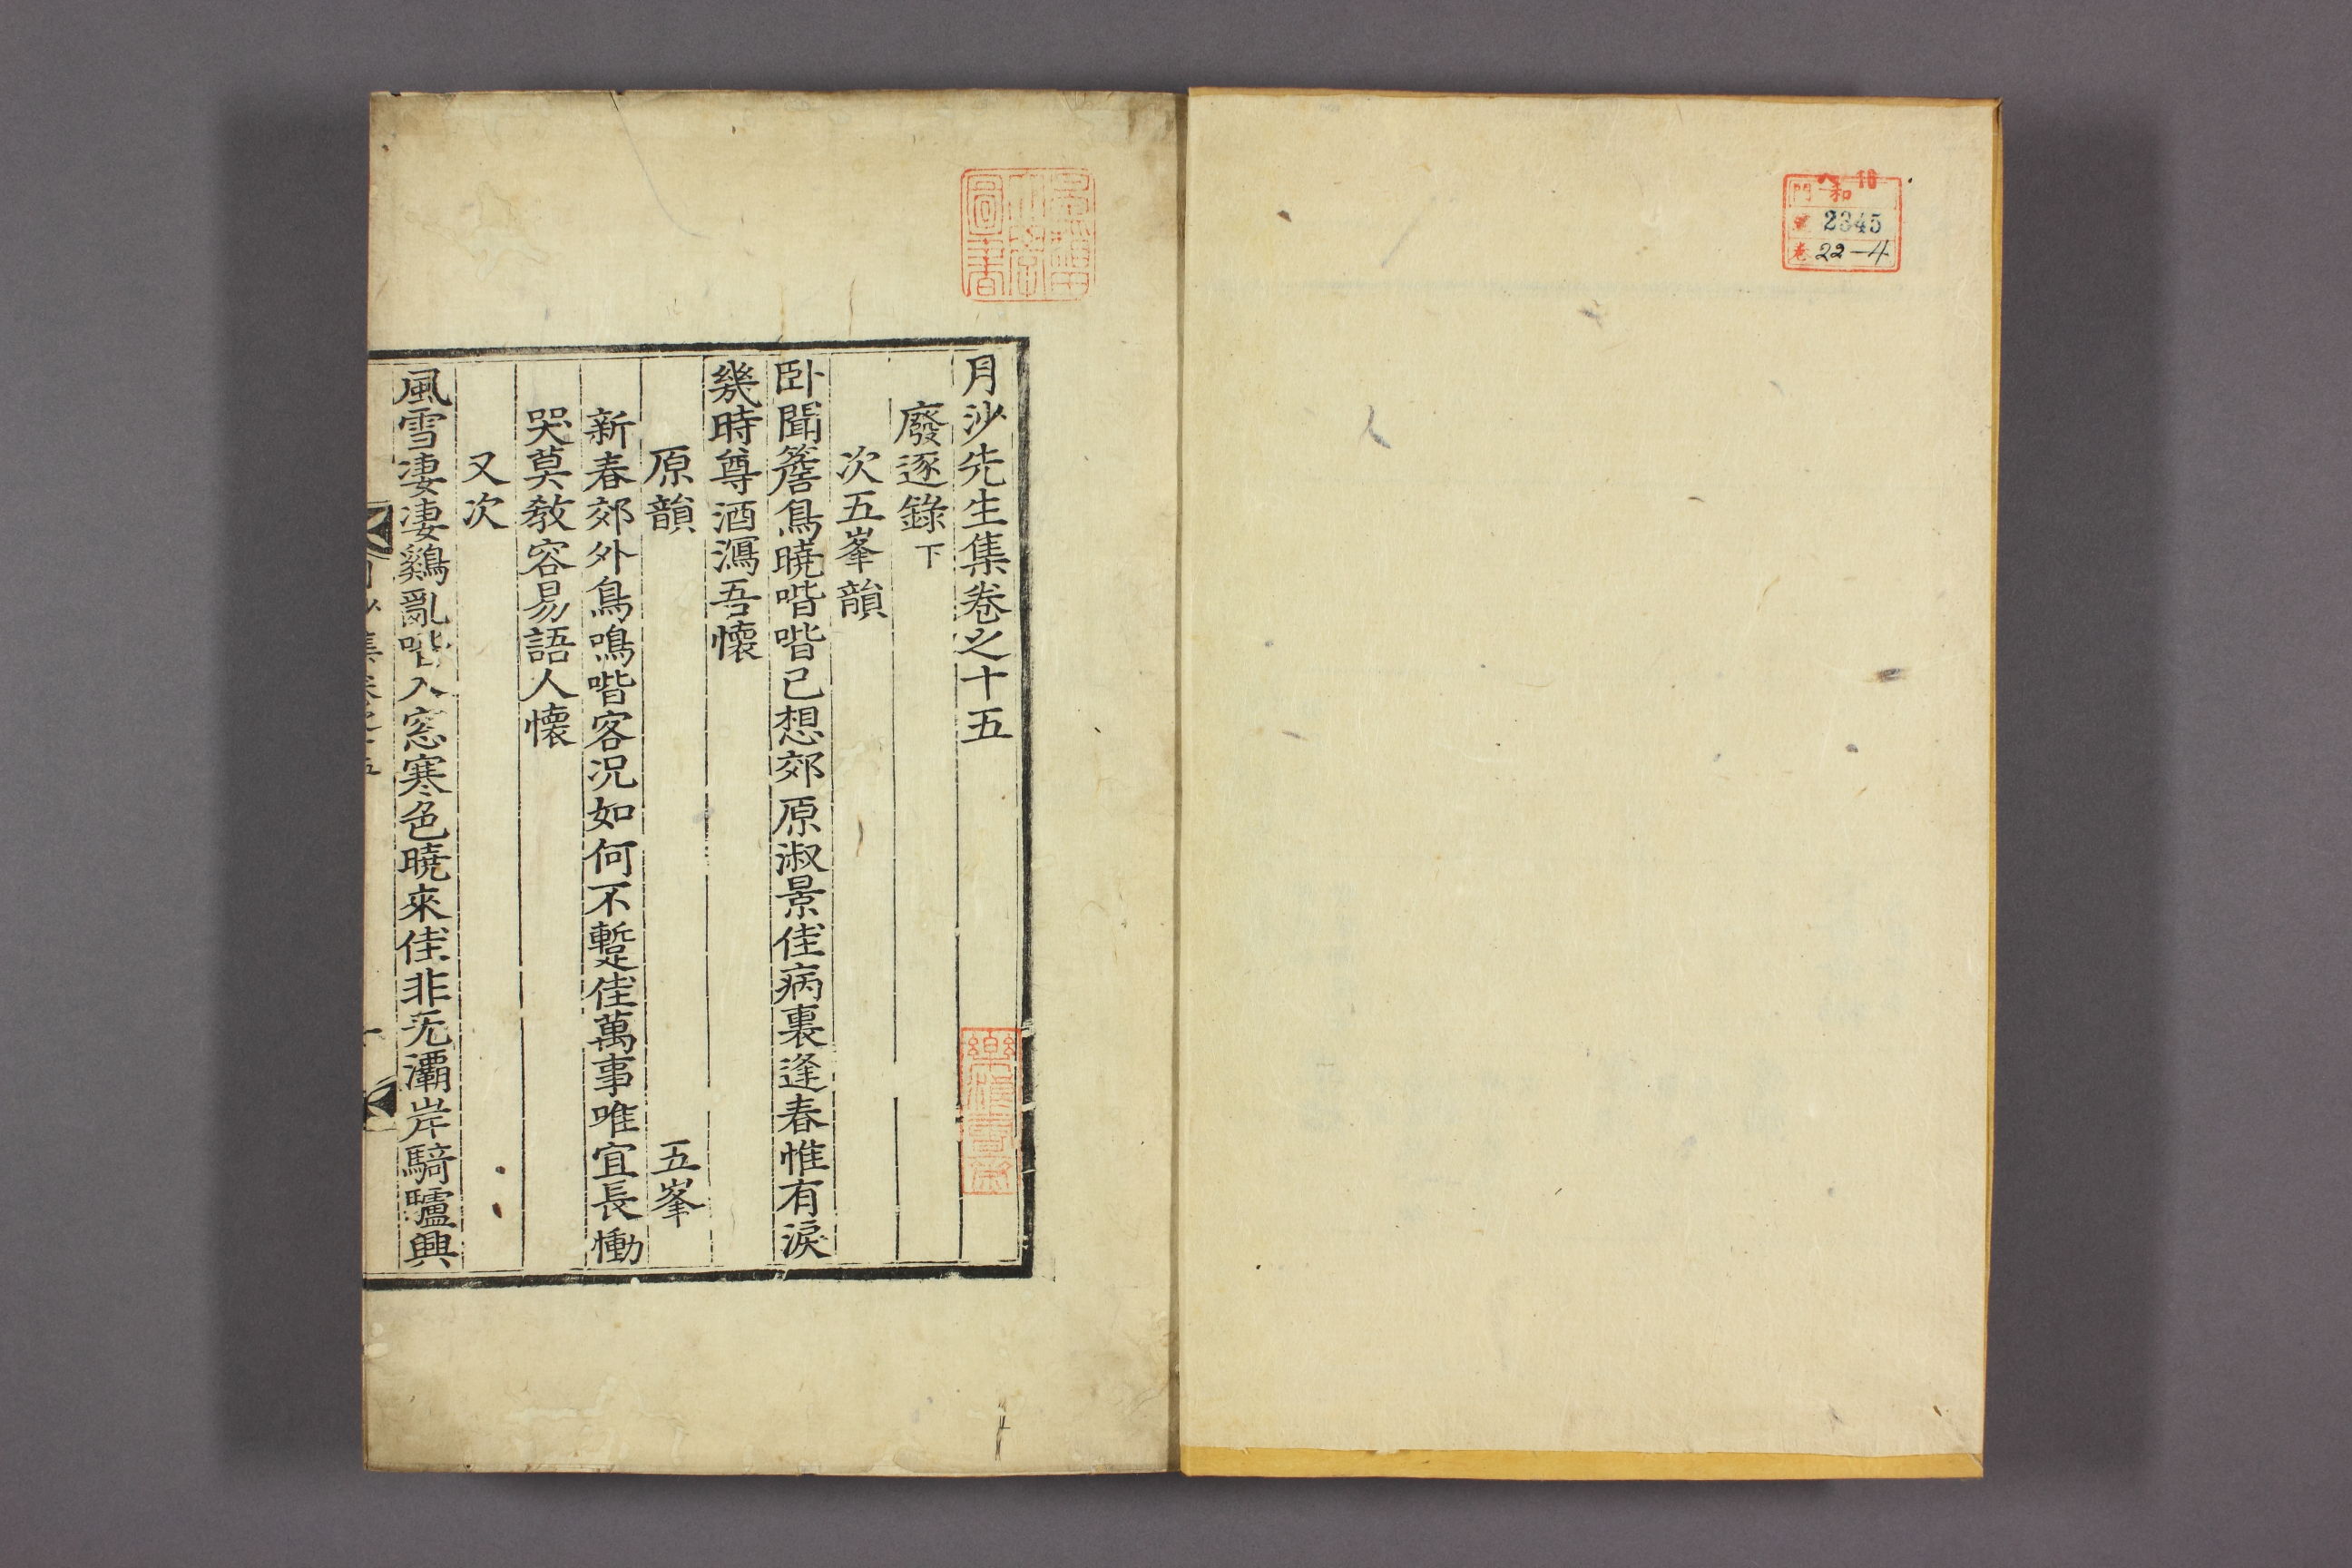 和
門
2345
卷 22-4
月沙先生集卷之十五
廢逐錄 下
次五峯韻
卧聞簷鳥曉喈喈已想郊原淑景佳病裏逢春惟有淚
幾時尊酒瀉吾懷
原韻 五峯
新春郊外鳥鳴喈客况如何不蹔佳萬事唯宜長慟
哭莫敎容易語人懷
又次
風雪凄凄鷄亂喈入窓寒色曉來佳非无灞岸騎驢興